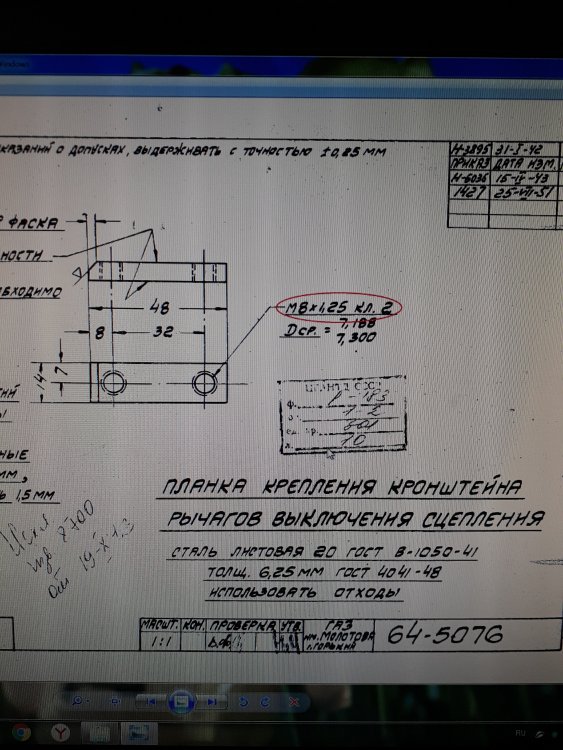 Windows
КАЗАНИЙ О ДОПУСКАХ, ВЫДЕРЖИВАТЬ С ТОЧНОСТЬЮ ±0,25 ММ
Н-3895 31-I-42
ПРИКАЗ ДАТА ИЗМ.
Н-6036 15-IV-43
1427 25-VII-51
Р ФАСКА
НОСТИ
ОБХОДИМО
48
8 32
14 7
М8×1,25 КЛ. 2
Dср. = 7,188
7,300
ПЛАНКА КРЕПЛЕНИЯ КРОНШТЕЙНА
РЫЧАГОВ ВЫКЛЮЧЕНИЯ СЦЕПЛЕНИЯ
СТАЛЬ ЛИСТОВАЯ 20 ГОСТ В-1050-41
ТОЛЩ. 6,25 ММ ГОСТ 4041-48
ИСПОЛЬЗОВАТЬ ОТХОДЫ
НЫЕ
ММ,
Ь 1,5 ММ
МАСШТ. КОН. ПРОВЕРКА УТВ.
1:1
ГАЗ
им. МОЛОТОВА
г. ГОРЬКИЙ
64-5076
RU